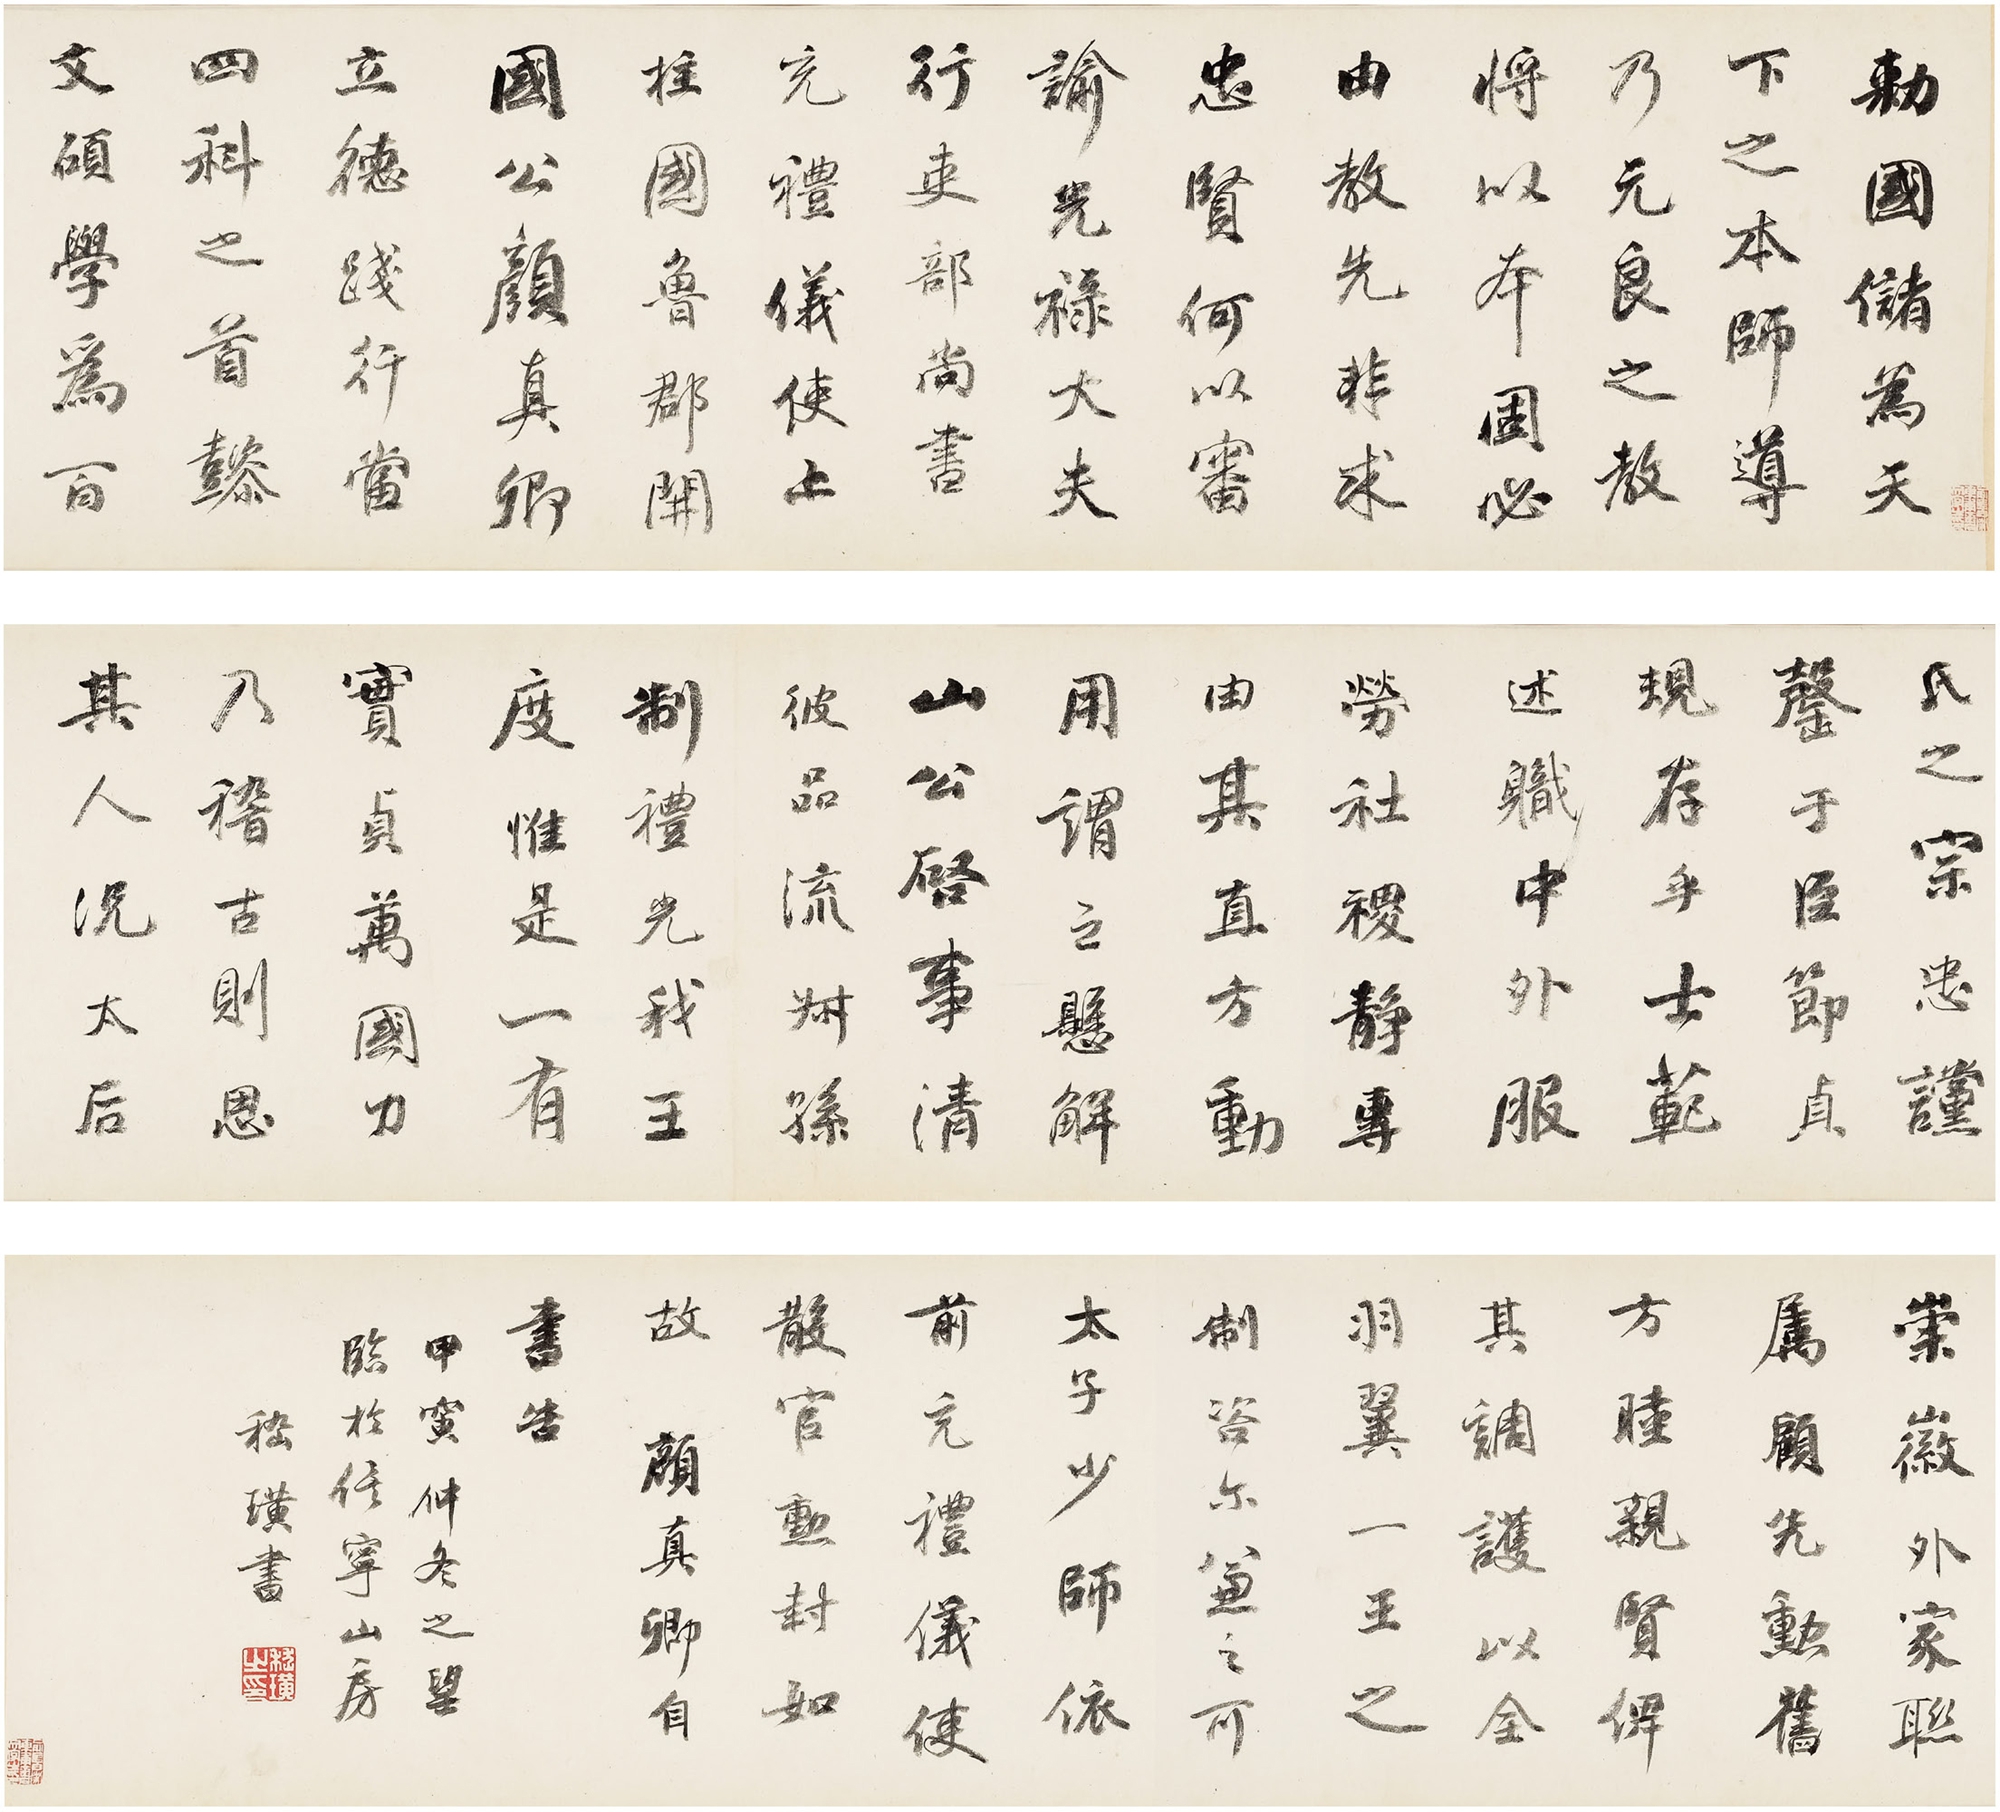 勅國儲為天
下之本師導
乃元良之教
将以本固必
由教先非求
忠賢何以審
諭光禄大夫
行吏部尚書
充禮儀使上
柱國魯郡開
國公顏真卿
立德踐行當
四科之首懿
文碩學為百
氏之宗忠讜
罄于臣節貞
規存乎士範
述職中外服
勞社稷静專
由其直方動
用謂之懸解
山公啓事清
彼品流叔孫
制禮光我王
度惟是一有
實貞萬國力
乃稽古則思
其人況太后
崇徽外家聯
屬顧先勳舊
方睦親賢俾
其調護以全
羽翼一王之
制咨尔兼之可
太子少師依
前充禮儀使
散官勳封如
故 顏真卿自
書告
甲寅仲冬之望
臨於信寧山房
嵇璜書
嵇璜之印